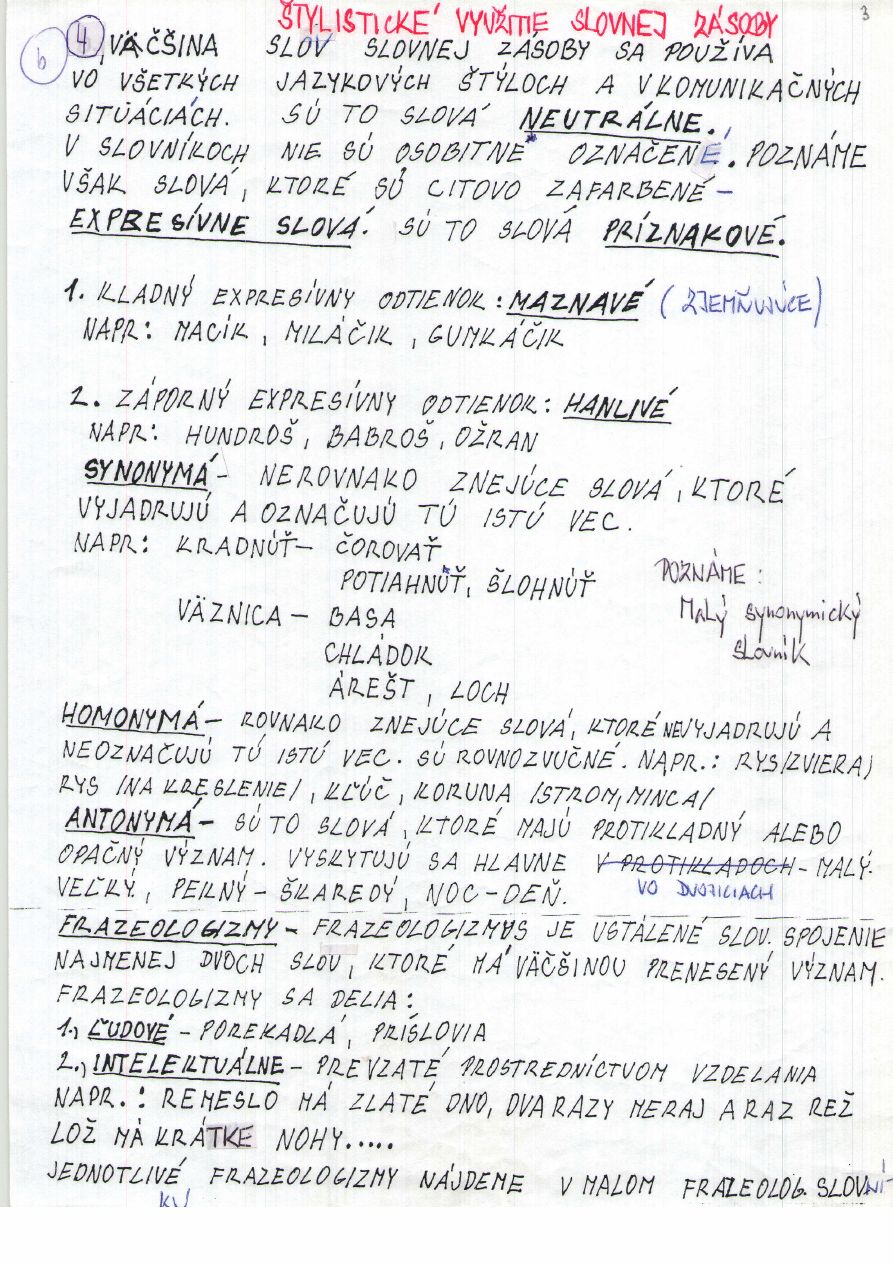 ŠTYLISTICKÉ VYUŽITIE SLOVNEJ ZÁSOBY
3
b 4, VÄČŠINA SLOV SLOVNEJ ZÁSOBY SA POUŽÍVA
VO VŠETKÝCH JAZYKOVÝCH ŠTÝLOCH A V KOMUNIKAČNÝCH
SITUÁCIÁCH. SÚ TO SLOVÁ NEUTRÁLNE.,
V SLOVNÍKOCH NIE SÚ OSOBITNE OZNAČENÉ. POZNÁME
VŠAK SLOVÁ, KTORÉ SÚ CITOVO ZAFARBENÉ –
EXPRESÍVNE SLOVÁ. SÚ TO SLOVÁ PRÍZNAKOVÉ.
1. KLADNÝ EXPRESÍVNY ODTIENOK: MAZNAVÉ (ZJEMŇUJÚCE)
NAPR: MACÍK, MILÁČIK, GUMKÁČIK
2. ZÁPORNÝ EXPRESÍVNY ODTIENOK: HANLIVÉ
NAPR: HUNDROŠ, BABROŠ, OŽRAN
SYNONYMÁ - NEROVNAKO ZNEJÚCE SLOVÁ, KTORÉ
VYJADRUJÚ A OZNAČUJÚ TÚ ISTÚ VEC.
NAPR: KRADNÚŤ – ČOROVAŤ
POTIAHNÚŤ, ŠLOHNÚŤ
VÄZNICA – BASA
CHLÁDOK
ÁREŠT, LOCH
POZNÁME:
Malý synonymický
slovník
HOMONYMÁ – ROVNAKO ZNEJÚCE SLOVÁ, KTORÉ NEVYJADRUJÚ A
NEOZNAČUJÚ TÚ ISTÚ VEC. SÚ ROVNOZVUČNÉ. NAPR.: RYS/ZVIERA)
RYS /NA KRESLENIE/, KĽÚČ, KORUNA /STROM, MINCA/
ANTONYMÁ – SÚ TO SLOVÁ, KTORÉ MAJÚ PROTIKLADNÝ ALEBO
OPAČNÝ VÝZNAM. VYSKYTUJÚ SA HLAVNE V PROTIKLADOCH - MALÝ-
VEĽKÝ, PEKNÝ – ŠKAREDÝ, NOC – DEŇ. VO DVOJICIACH
FRAZEOLOGIZMY – FRAZEOLOGIZMUS JE USTÁLENÉ SLOV. SPOJENIE
NAJMENEJ DVOCH SLOV, KTORÉ MÁ VÄČŠINOU PRENESENÝ VÝZNAM.
FRAZEOLOGIZMY SA DELIA:
1., ĽUDOVÉ – POREKADLÁ, PRÍSLOVIA
2., INTELEKTUÁLNE – PREVZATÉ PROSTREDNÍCTVOM VZDELANIA
NAPR.: REMESLO MÁ ZLATÉ DNO, DVA RAZY MERAJ A RAZ REŽ
LOŽ MÁ KRÁTKE NOHY.....
JEDNOTLIVÉ FRAZEOLOGIZMY NÁJDEME V MALOM FRAZEOLOG. SLOVNÍ-
KU